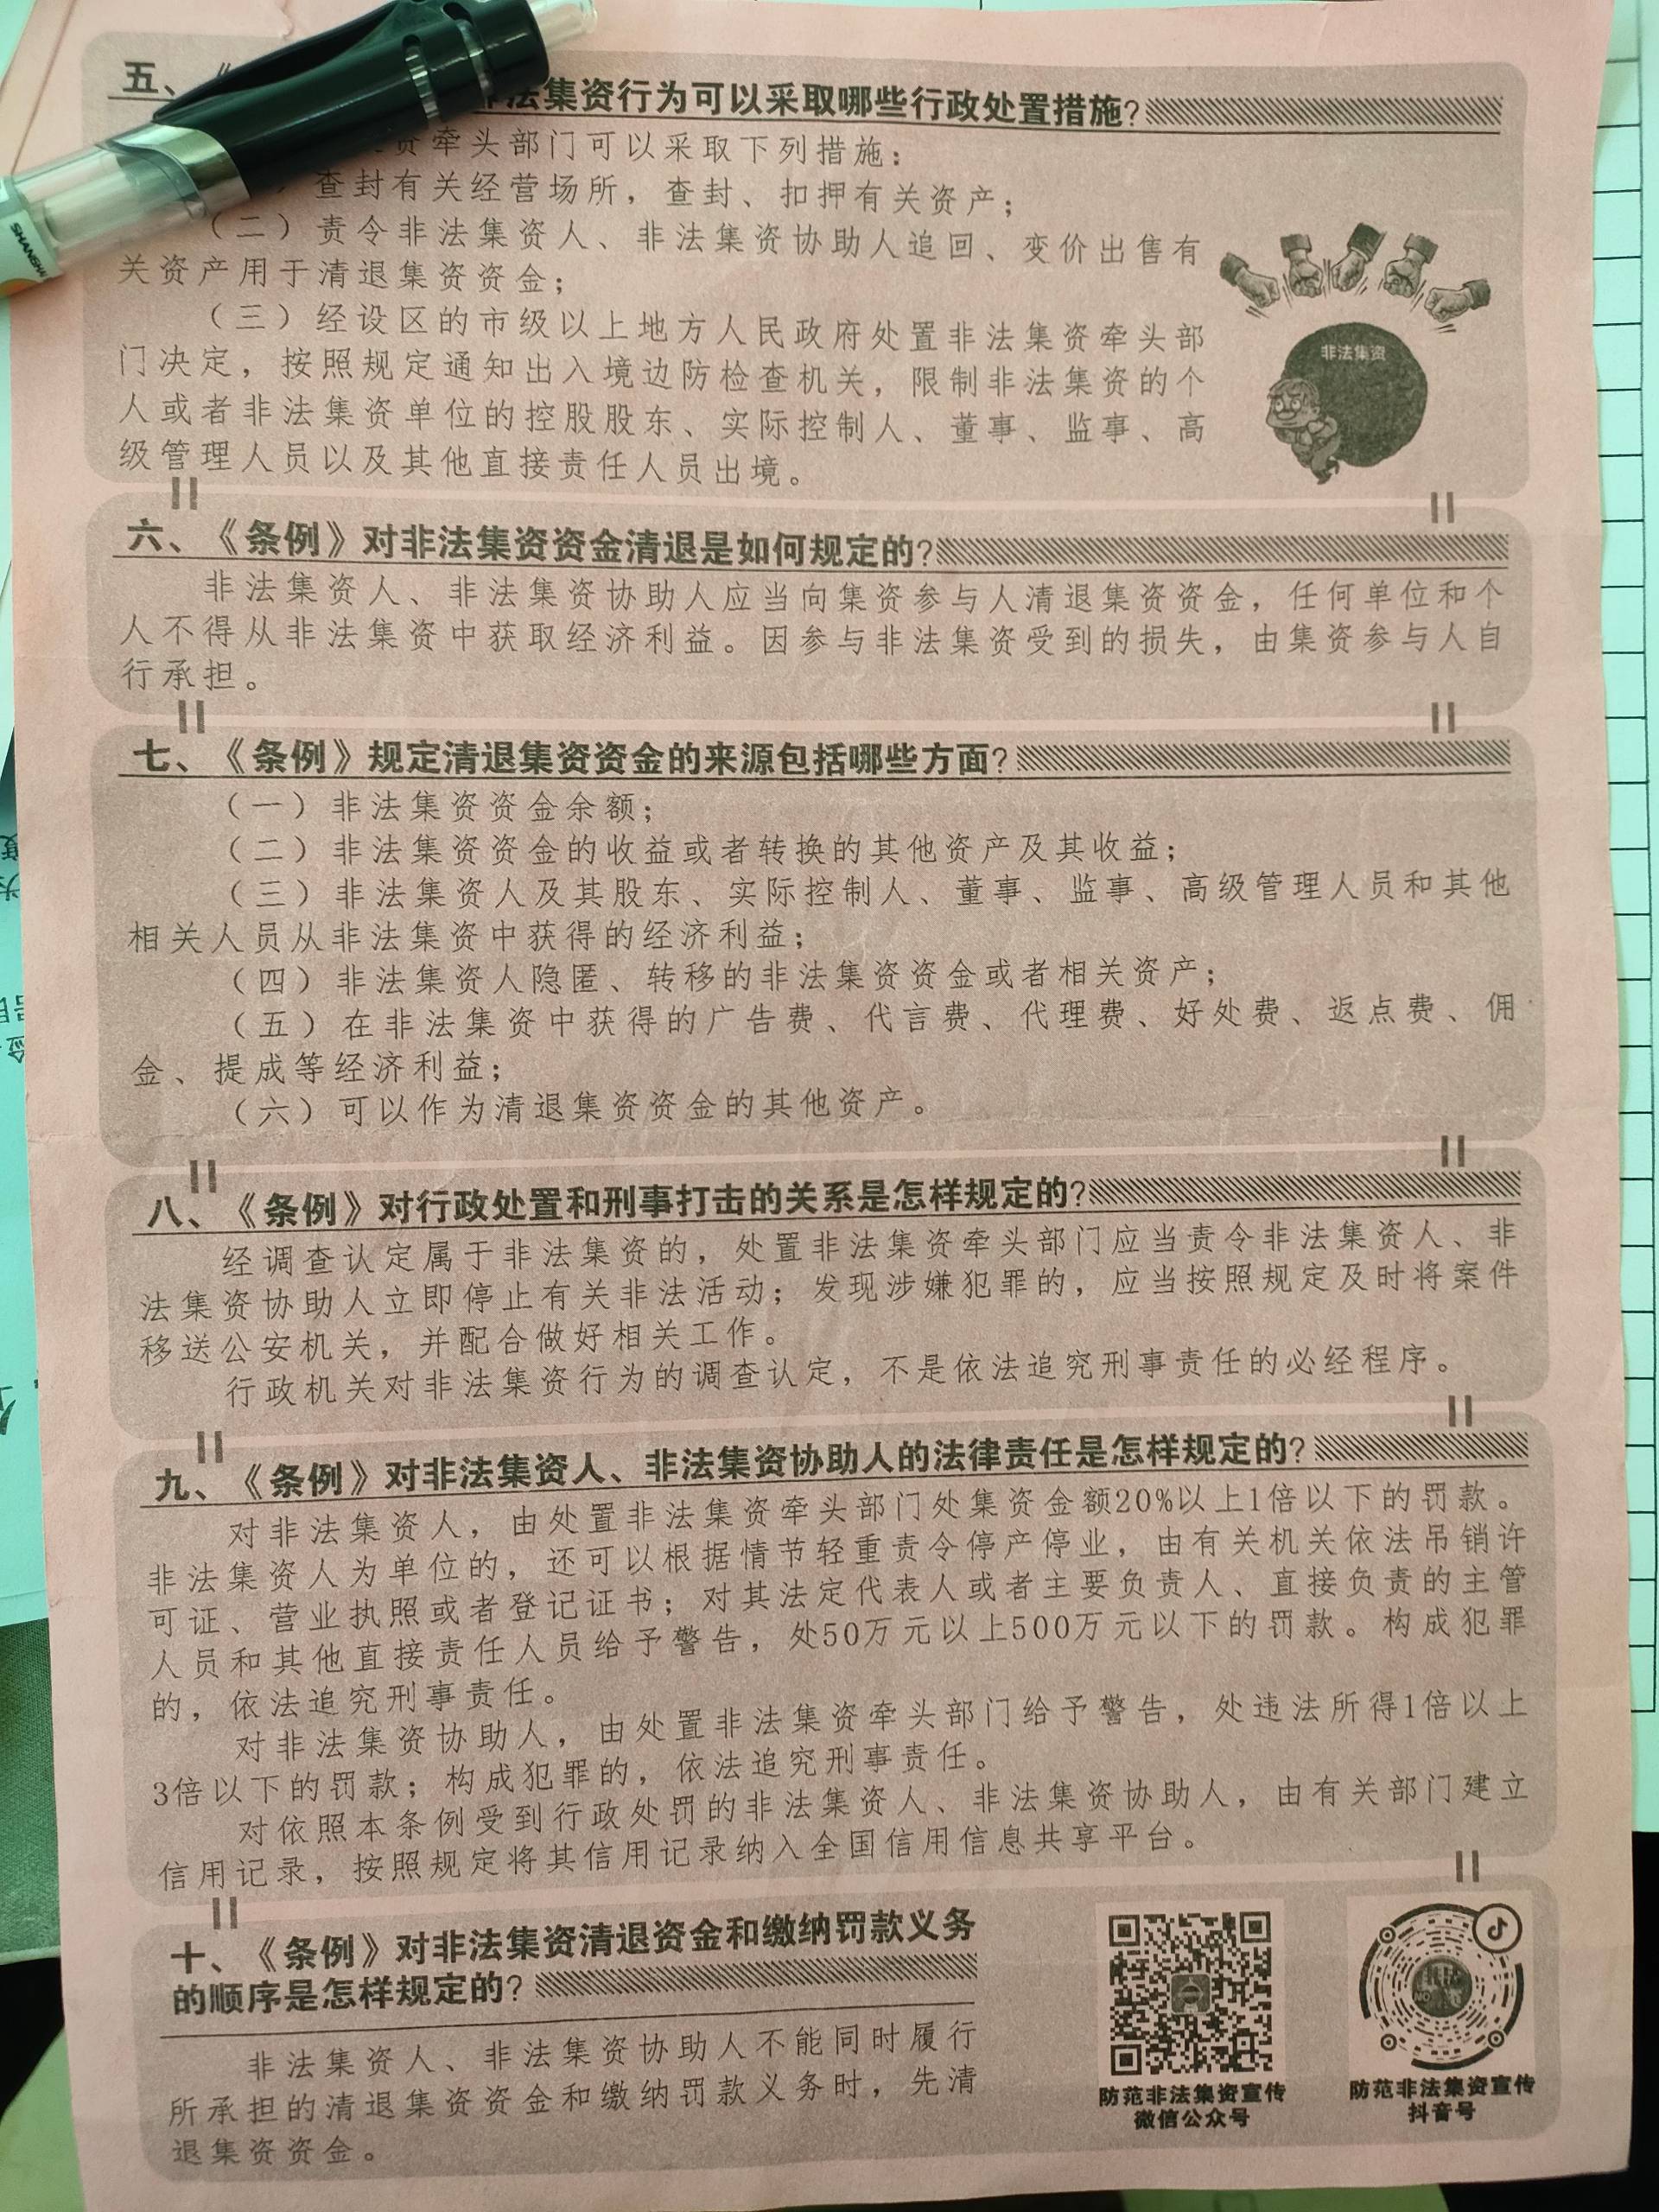 五、《
非法集资行为可以采取哪些行政处置措施?
资牵头部门可以采取下列措施：
查封有关经营场所，查封、扣押有关资产；
（二）责令非法集资人、非法集资协助人追回、变价出售有
关资产用于清退集资资金；
（三）经设区的市级以上地方人民政府处置非法集资牵头部
门决定，按照规定通知出入境边防检查机关，限制非法集资的个
人或者非法集资单位的控股股东、实际控制人、董事、监事、高
级管理人员以及其他直接责任人员出境。
非法集资
六、《条例》对非法集资资金清退是如何规定的?
非法集资人、非法集资协助人应当向集资参与人清退集资资金，任何单位和个
人不得从非法集资中获取经济利益。因参与非法集资受到的损失，由集资参与人自
行承担。
七、《条例》规定清退集资资金的来源包括哪些方面?
（一）非法集资资金余额；
（二）非法集资资金的收益或者转换的其他资产及其收益；
（三）非法集资人及其股东、实际控制人、董事、监事、高级管理人员和其他
相关人员从非法集资中获得的经济利益；
（四）非法集资人隐匿、转移的非法集资资金或者相关资产；
（五）在非法集资中获得的广告费、代言费、代理费、好处费、返点费、佣
金、提成等经济利益；
（六）可以作为清退集资资金的其他资产。
八、《条例》对行政处置和刑事打击的关系是怎样规定的?
经调查认定属于非法集资的，处置非法集资牵头部门应当责令非法集资人、非
法集资协助人立即停止有关非法活动；发现涉嫌犯罪的，应当按照规定及时将案件
移送公安机关，并配合做好相关工作。
行政机关对非法集资行为的调查认定，不是依法追究刑事责任的必经程序。
九、《条例》对非法集资人、非法集资协助人的法律责任是怎样规定的?
对非法集资人，由处置非法集资牵头部门处集资金额20%以上1倍以下的罚款。
非法集资人为单位的，还可以根据情节轻重责令停产停业，由有关机关依法吊销许
可证、营业执照或者登记证书；对其法定代表人或者主要负责人、直接负责的主管
人员和其他直接责任人员给予警告，处50万元以上500万元以下的罚款。构成犯罪
的，依法追究刑事责任。
对非法集资协助人，由处置非法集资牵头部门给予警告，处违法所得1倍以上
3倍以下的罚款；构成犯罪的，依法追究刑事责任。
对依照本条例受到行政处罚的非法集资人、非法集资协助人，由有关部门建立
信用记录，按照规定将其信用记录纳入全国信用信息共享平台。
十、《条例》对非法集资清退资金和缴纳罚款义务
的顺序是怎样规定的?
非法集资人、非法集资协助人不能同时履行
所承担的清退集资资金和缴纳罚款义务时，先清
退集资资金。
防范非法集资宣传
微信公众号
防范非法集资宣传
抖音号